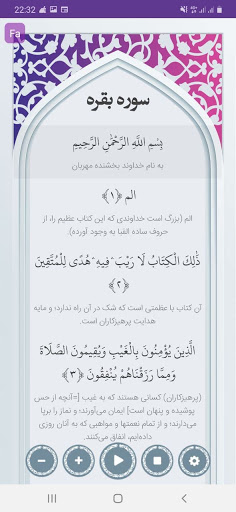 22:32
Fa
سوره بقره
بِسْمِ اللَّهِ الرَّحْمَٰنِ الرَّحِيمِ
به نام خداوند بخشنده مهربان
الم ﴿١﴾
الم (بزرگ است خداوندی که این کتاب عظیم را، از
حروف ساده الفبا به وجود آورده).
ذَٰلِكَ الْكِتَابُ لَا رَيْبَ ۛ فِيهِ ۛ هُدًى لِلْمُتَّقِينَ
﴿٢﴾
آن کتاب با عظمتی است که شک در آن راه ندارد؛ و مایه
هدایت پرهیزکاران است.
الَّذِينَ يُؤْمِنُونَ بِالْغَيْبِ وَيُقِيمُونَ الصَّلَاةَ
وَمِمَّا رَزَقْنَاهُمْ يُنْفِقُونَ ﴿٣﴾
(پرهیزکاران) کسانی هستند که به غیب [=آنچه از حس
پوشیده و پنهان است] ایمان می‌آورند؛ و نماز را برپا
می‌دارند؛ و از تمام نعمتها و مواهبی که به آنان روزی
داده‌ایم، انفاق می‌کنند.